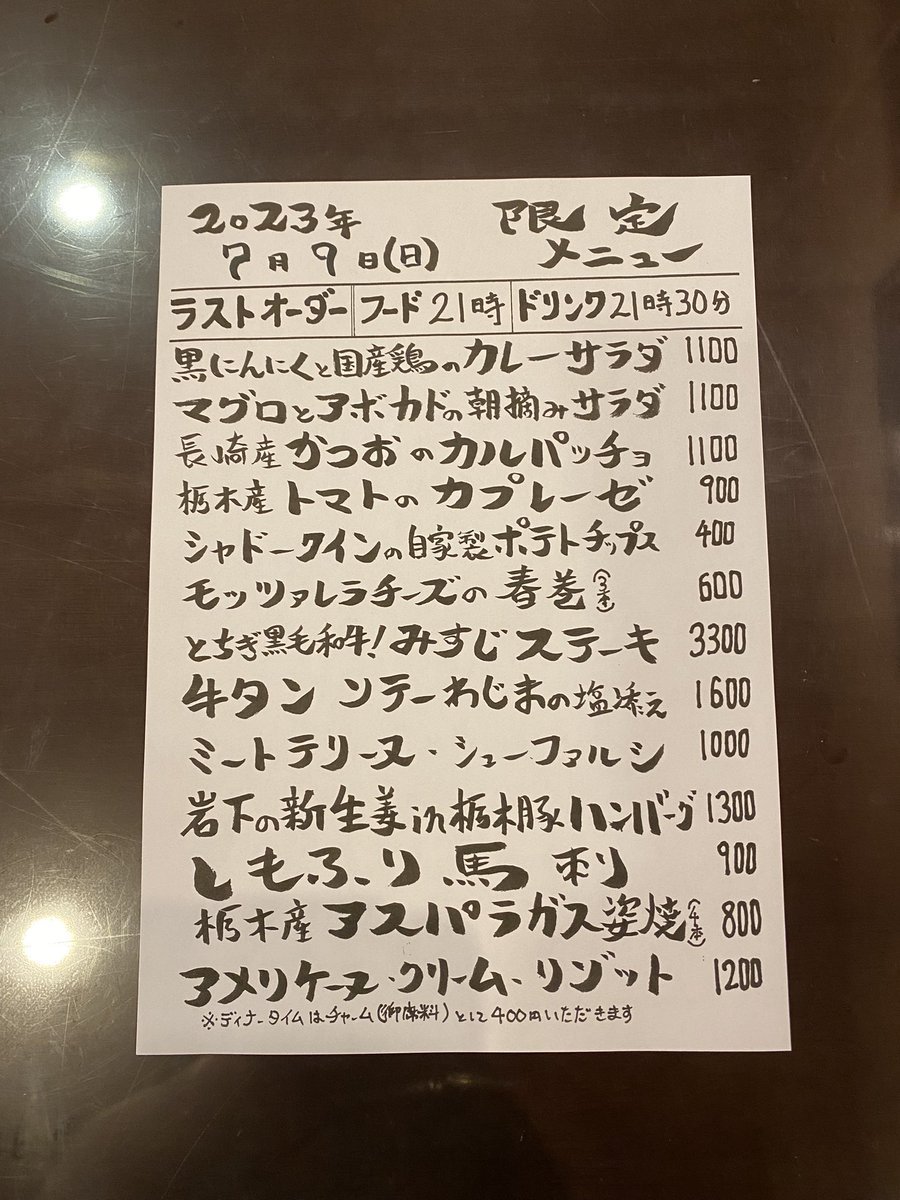 2023年 限定
7月9日(日) メニュー
ラストオーダー フード21時 ドリンク21時30分
黒にんにくと国産鶏のカレーサラダ 1100
マグロとアボカドの朝摘みサラダ 1100
長崎産かつおのカルパッチョ 1100
栃木産トマトのカプレーゼ 900
シャドークインの自家製ポテトチップス 400
モッツァレラチーズの春巻(3本) 600
とちぎ黒毛和牛!みすじステーキ 3300
牛タンソテーわじまの塩添え 1600
ミートテリーヌ・シューファルシ 1000
岩下の新生姜in栃木豚ハンバーグ 1300
しもふり馬刺 900
栃木産アスパラガス姿焼(4本) 800
アメリケーヌ・クリーム・リゾット 1200
※ディナータイムはチャーム(御席料)として400円いただきます